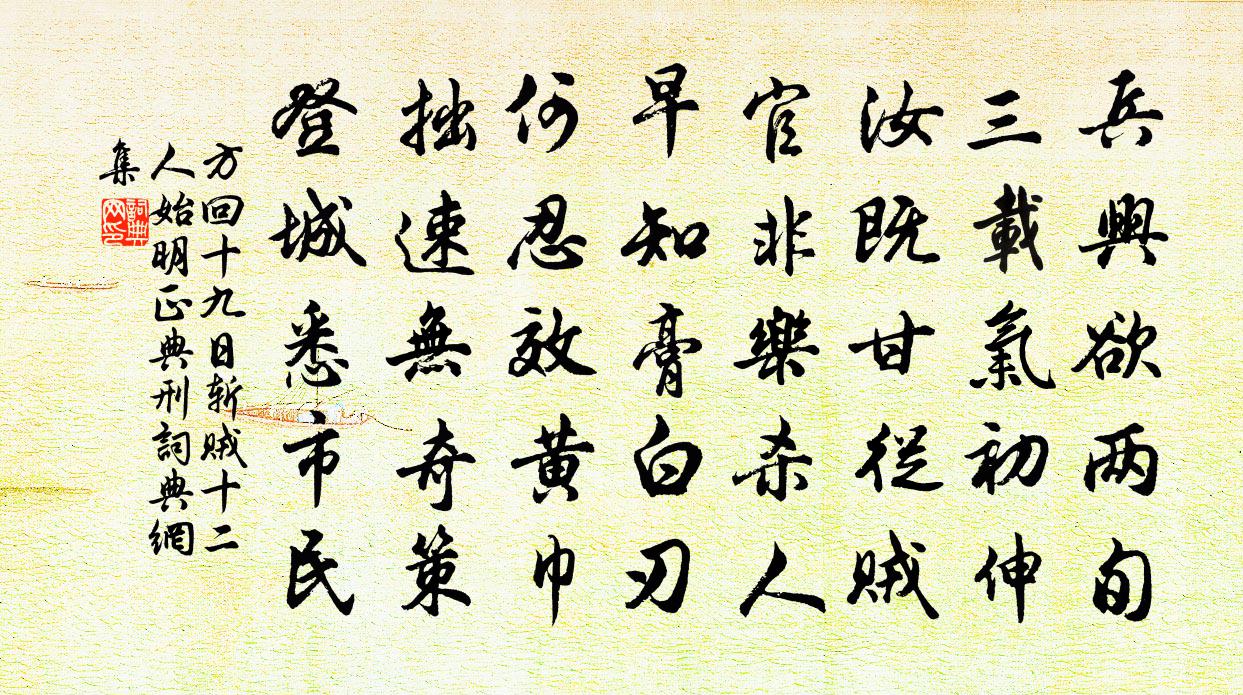 兵興欲两旬
三載氣初伸
汝既甘從贼
官非樂杀人
早知膏白刃
何忍效黄巾
拙速無奇策
登城悉市民
方回十九日斩贼十二
人始明正典刑詞典網
集
詞典网印